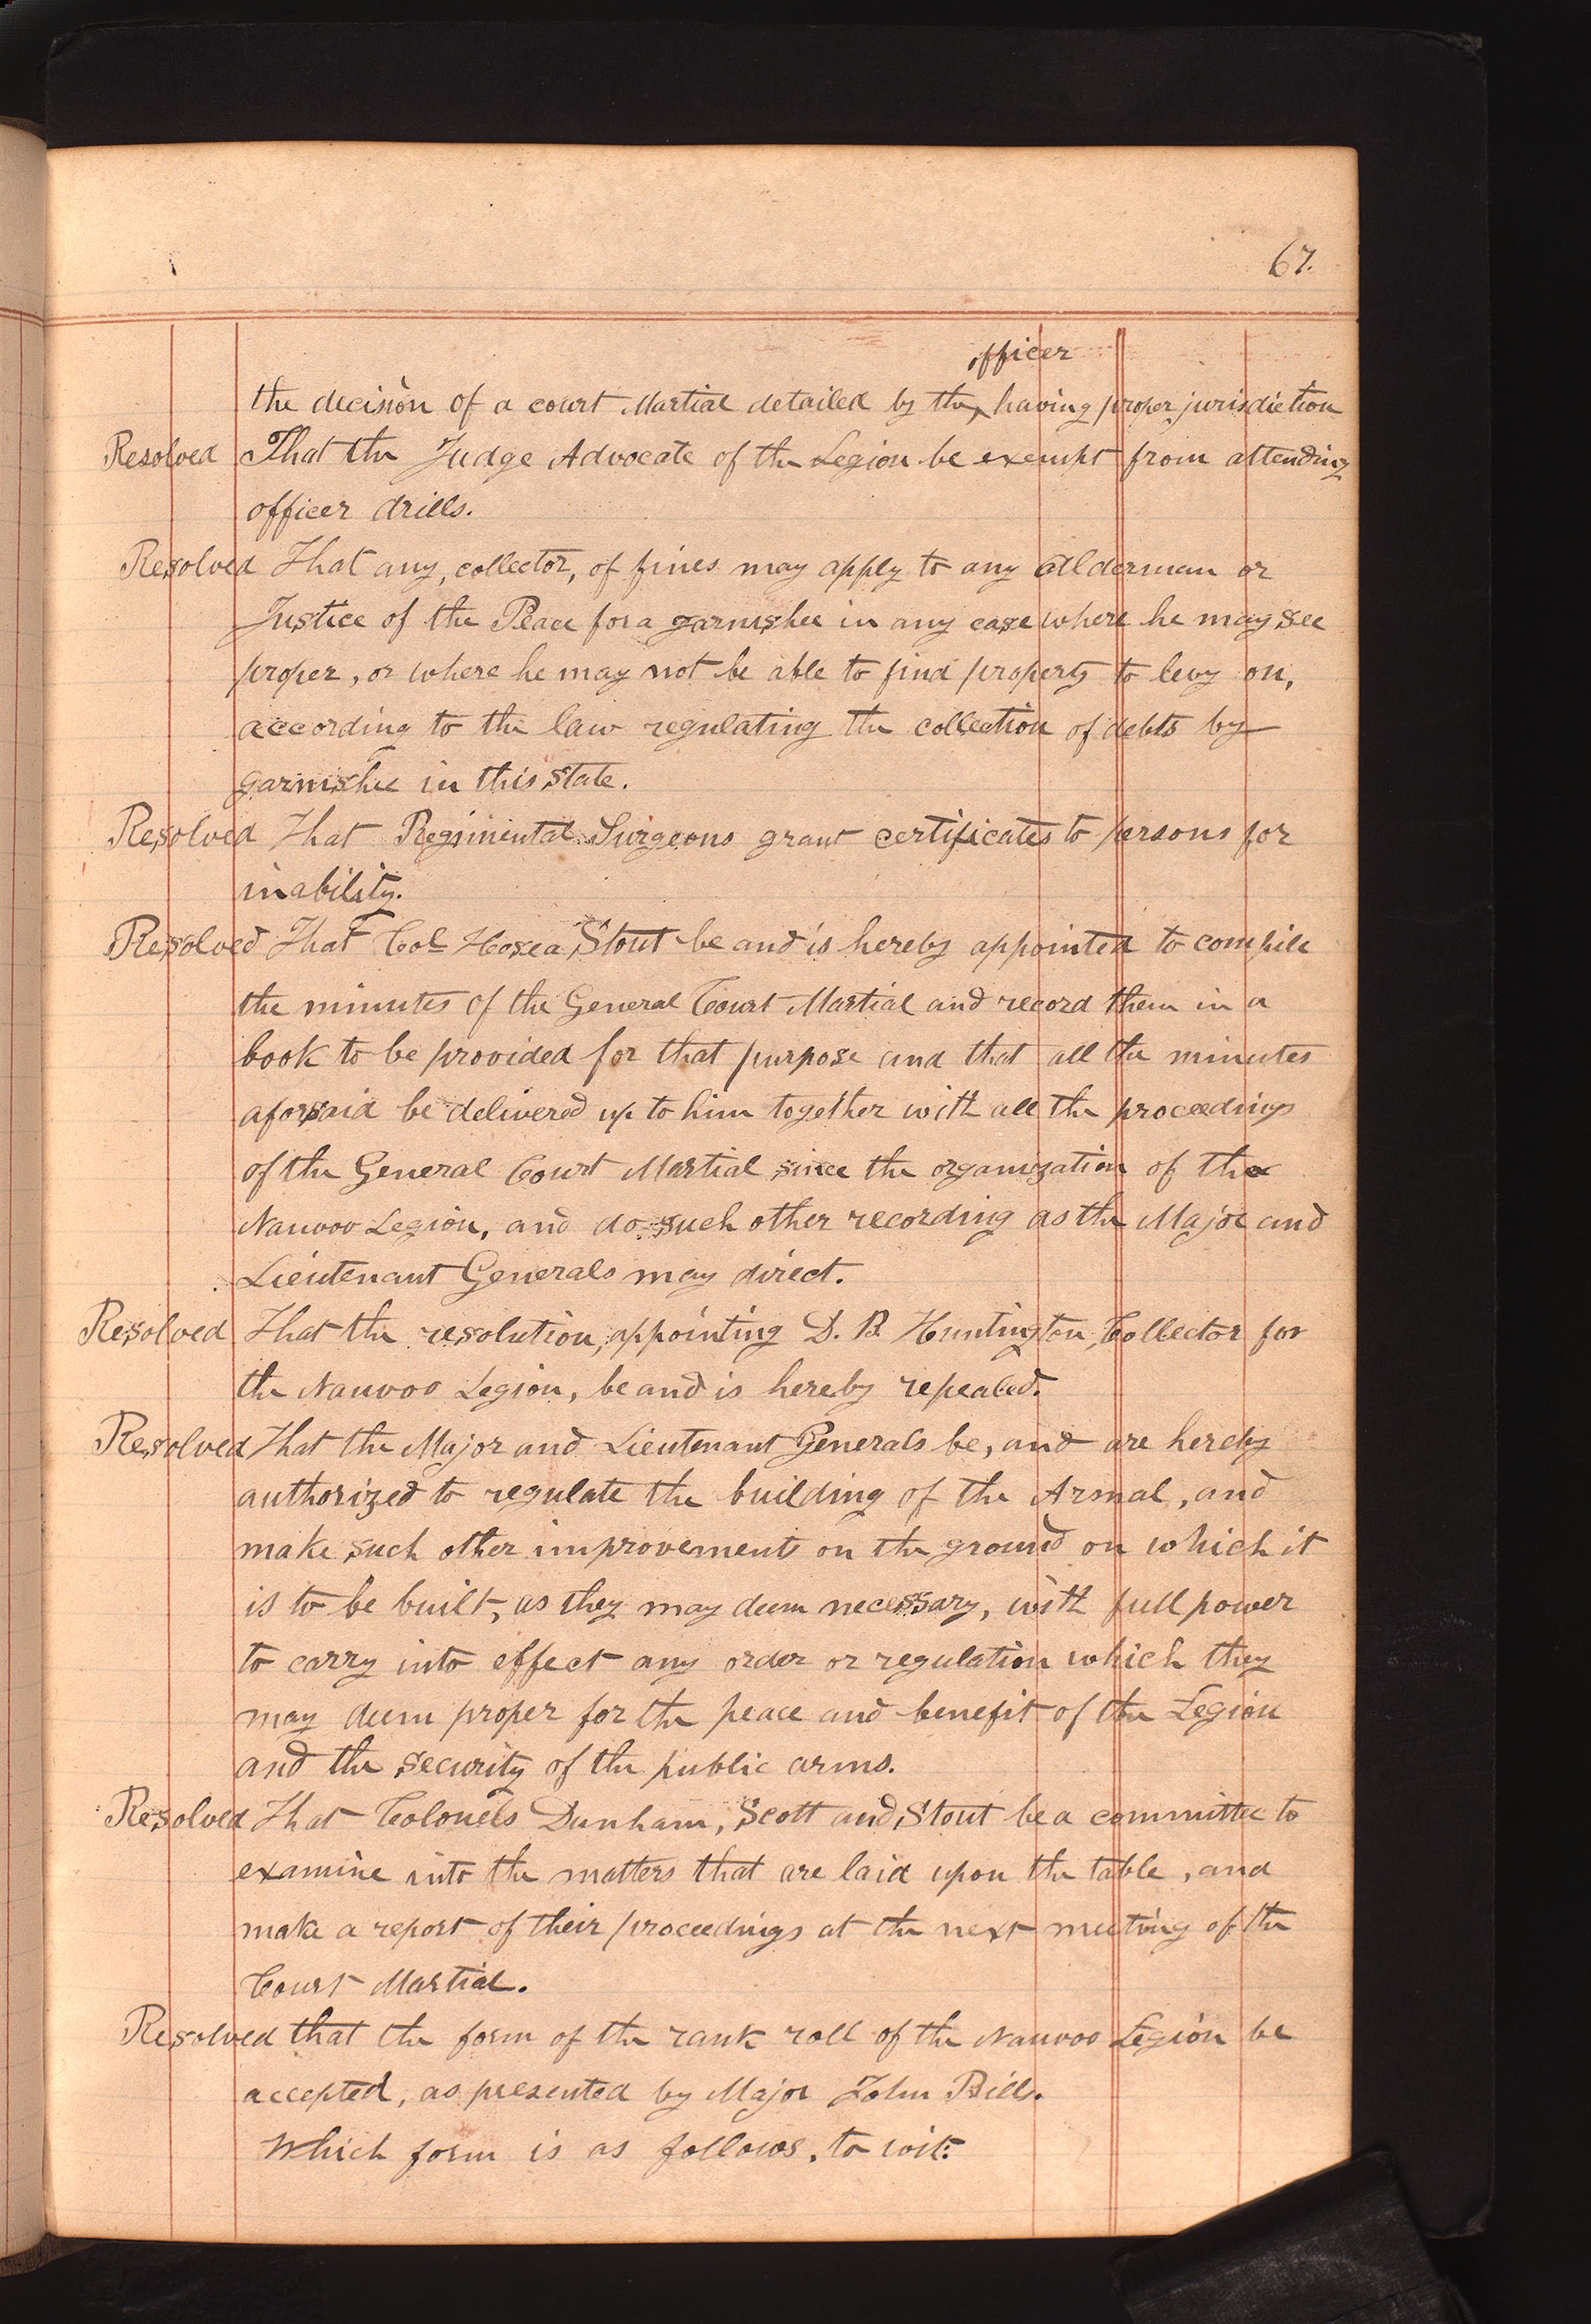 67.
officer
the decision of a court Martial detailed by the ‸ having proper jurisdiction
Resolved That the Judge Advocate of the Legion be exempt from attending
officer drills.
Resolved That any, collector, of fines may apply to any Alderman or
Justice of the Peace for a garnishee in any case where he may see
proper, or where he may not be able to find property to levy on,
according to the law regulating the collection of debts by
garnishee in this State.
Resolved That Regimental Surgeons grant certificates to persons for
inability.
Resolved That Col Hosea Stout be and is hereby appointed to compile
the minutes of the General Court Martial and record them in a
book to be provided for that purpose and that all the minutes
aforsaid be delivered up to him together with all the proceedings
of the General Court Martial since the organization of the
Nauvoo Legion, and do such other recording as the Major and
Lieutenant Generals may direct.
Resolved That the resolution, appointing D. B. Huntington, Collector for
the Nauvoo Legion, be and is hereby repealed.
Resolved That the Major and Lieutenant Generals be, and are hereby
authorized to regulate the building of the Arsnal, and
make such other improvements on the ground on which it
is to be built, as they may deem necessary, with full power
to carry into effect any order or regulation which they
may deem proper for the peace and benefit of the Legion
and the security of the public arms.
Resolved That Colonels Dunham, Scott and Stout be a committee to
examine into the matters that are laid upon the table, and
make a report of their proceedings at the next meeting of the
Court Martial.
Resolved that the form of the rank roll of the Nauvoo Legion be
accepted, as presented by Major John Bills.
Which form is as follows, to wit: